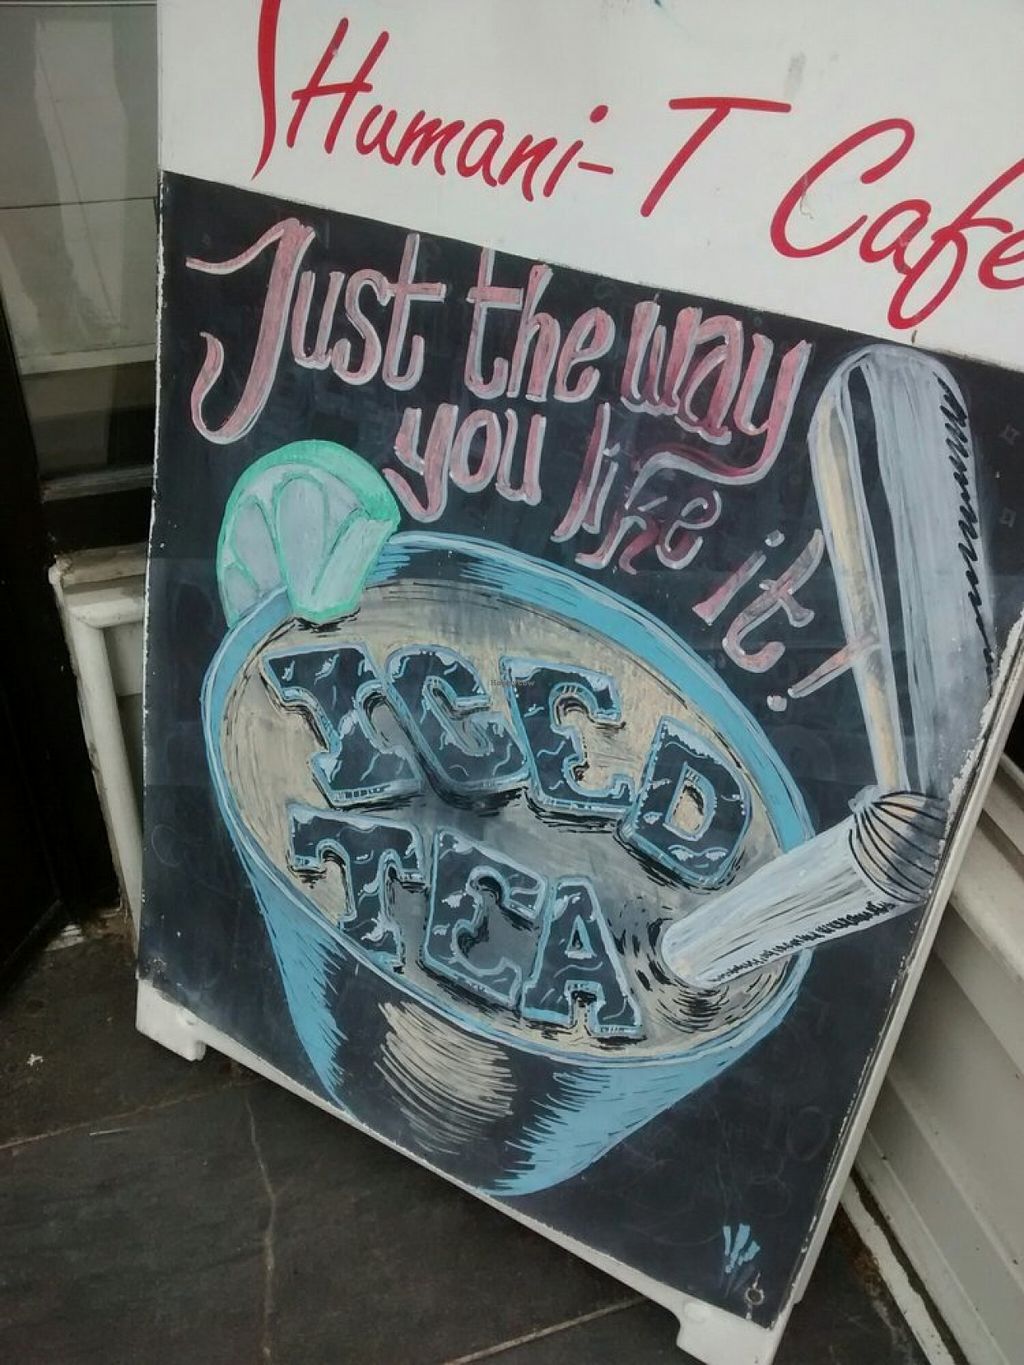 Humani-T Cafe
Just the way
you like it!
ICED
TEA